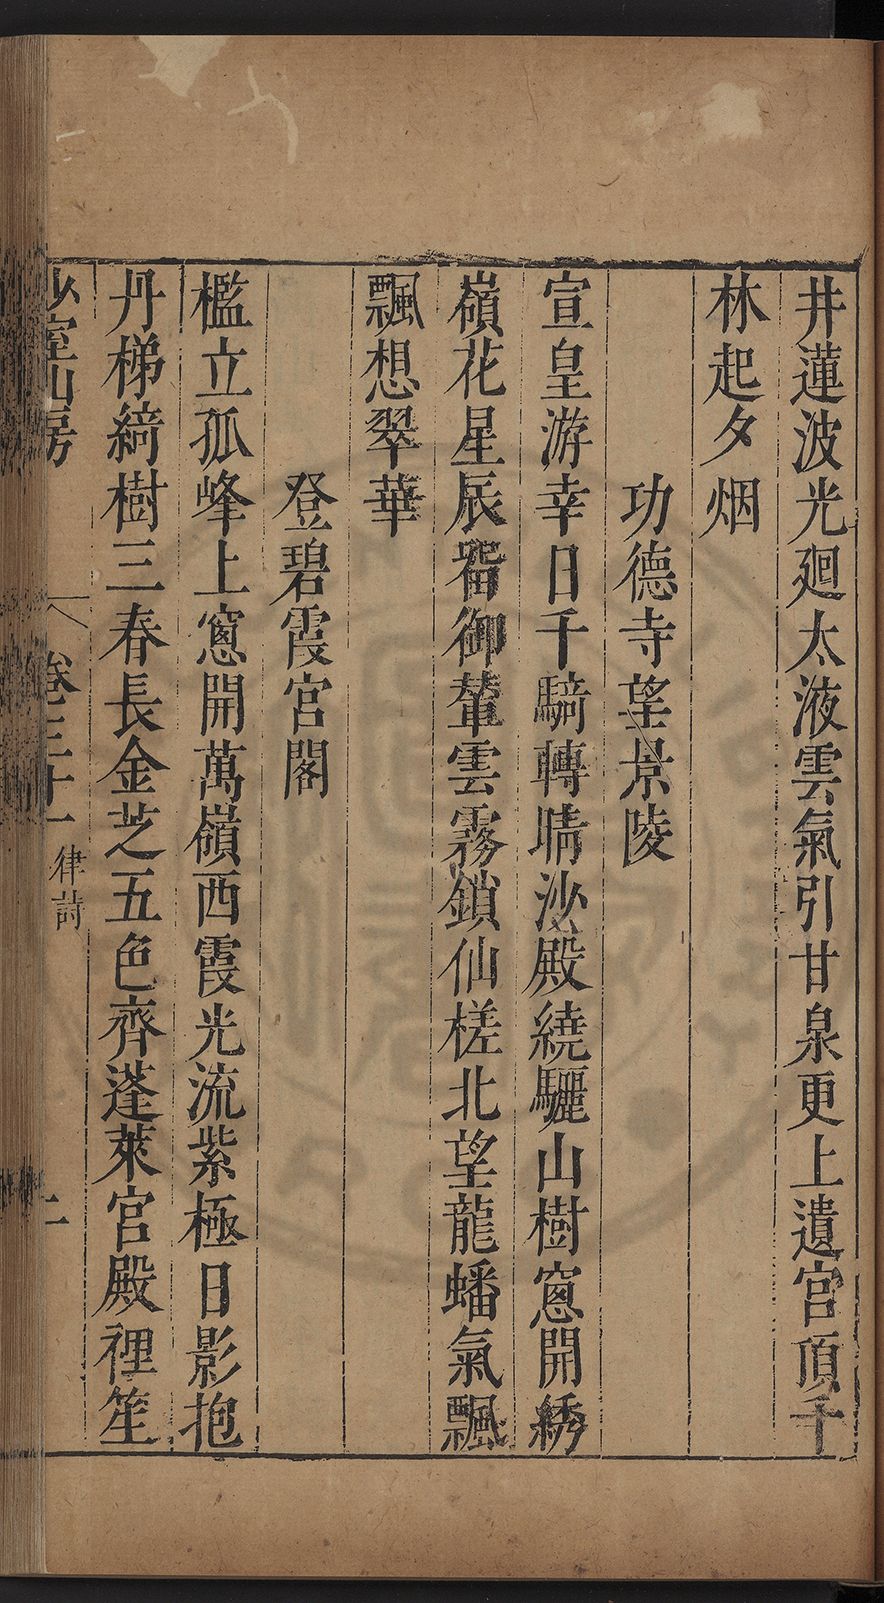 井蓮波光廻太液雲氣引甘泉更上遺宮頂千
林起夕烟
功德寺望景陵
宣皇游幸日千騎轉晴沙殿繞驪山樹窻開綉
嶺花星辰畱御輦雲霧鎖仙槎北望龍蟠氣飄
飄想翠華
登碧霞宮閣
檻立孤峰上窻開萬嶺西霞光流紫極日影抱
丹梯綺樹三春長金芝五色齊蓬萊宮殿裡笙
少室山房
卷三十一 律詩
二